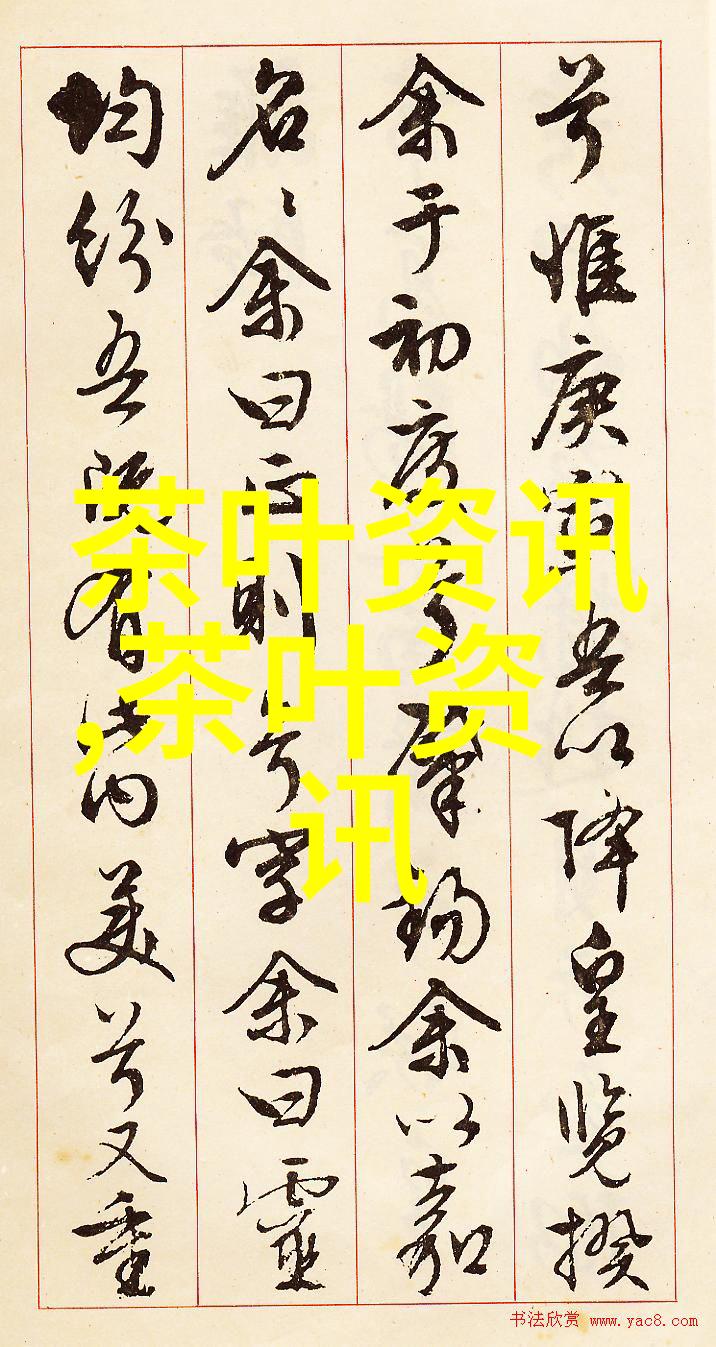 兮惟庚寅吾以降皇覽揆
余于初度兮肇錫余以嘉
名〻余曰正則兮字余曰靈
均紛吾既有此内美兮又重
茶叶资讯
,茶叶资
讯
书法欣赏 www.yac8.com